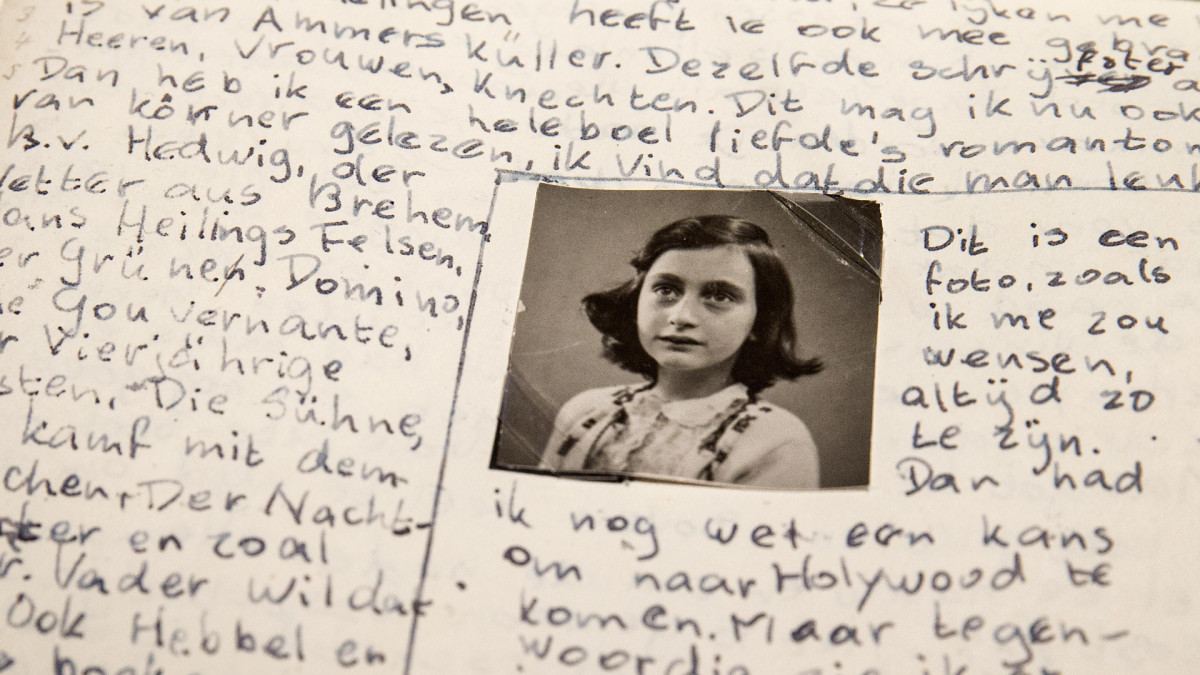 heeft ie ook mee gebra
is van Ammers Küller. Dezelfde schrijfster
Heeren, Vrouwen, Knechten. Dit mag ik nu ook
Dan heb ik een heleboel liefde's romanton
van kôrner gelezen, ik vind dat die man leuk
B.v. Hedwig, der
Vetter aus Brehem,
ans Heilings Felsen,
er Grünen, Domino,
Gouvernante,
r Vierjährige
sten, Die Sühne,
kamf mit dem
chen, Der Nacht-
ter en zoal
r. Vader wil dat
Ook Hebbel en
Dit is een
foto, zoals
ik me zou
wensen,
altijd zo
te zijn.
Dan had
ik nog wel een kans
om naar Holywood te
komen. Maar tegen-
woordig